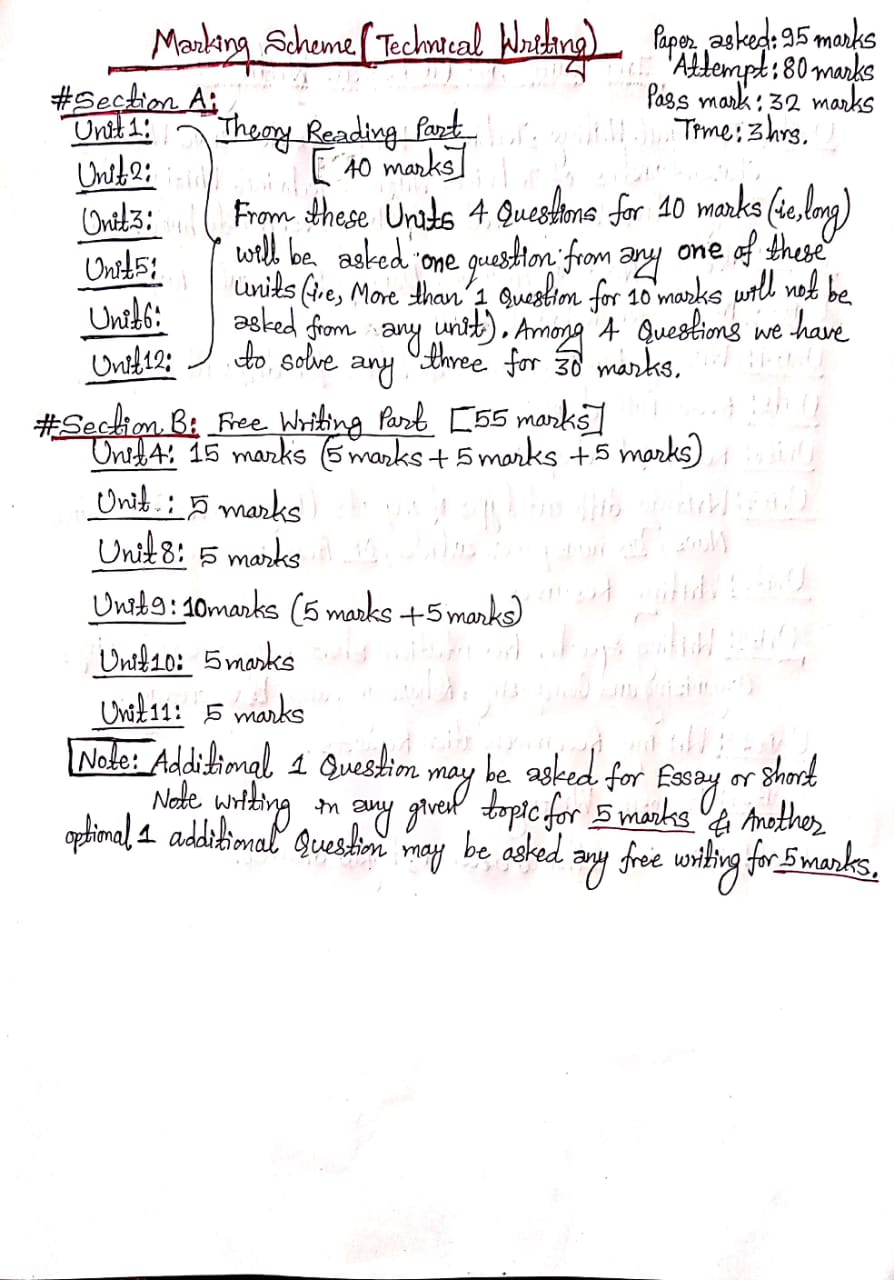 Marking Scheme (Technical Writing)
Paper asked: 95 marks
Attempt: 80 marks
Pass mark: 32 marks
Time: 3hrs.
#Section A:
Unit1:
Unit2:
Unit3:
Unit5:
Unit6:
Unit12:
Theory Reading Part
[ 40 marks]
From these Units 4 Questions for 10 marks (ie, long)
will be asked one question from any one of these
units (i.e, More than 1 Question for 10 marks will not be
asked from any unit). Among 4 Questions we have
to solve any three for 30 marks.
#Section B: Free Writing Part [55 marks]
Unit4: 15 marks (5 marks + 5 marks + 5 marks)
Unit : 5 marks
Unit8: 5 marks
Unit9: 10marks (5 marks + 5 marks)
Unit10: 5marks
Unit11: 5 marks
Note: Additional 1 Question may be asked for Essay or Short
Note writing in any given topic for 5 marks & Another
optional 1 additional Question may be asked any free writing for 5 marks.